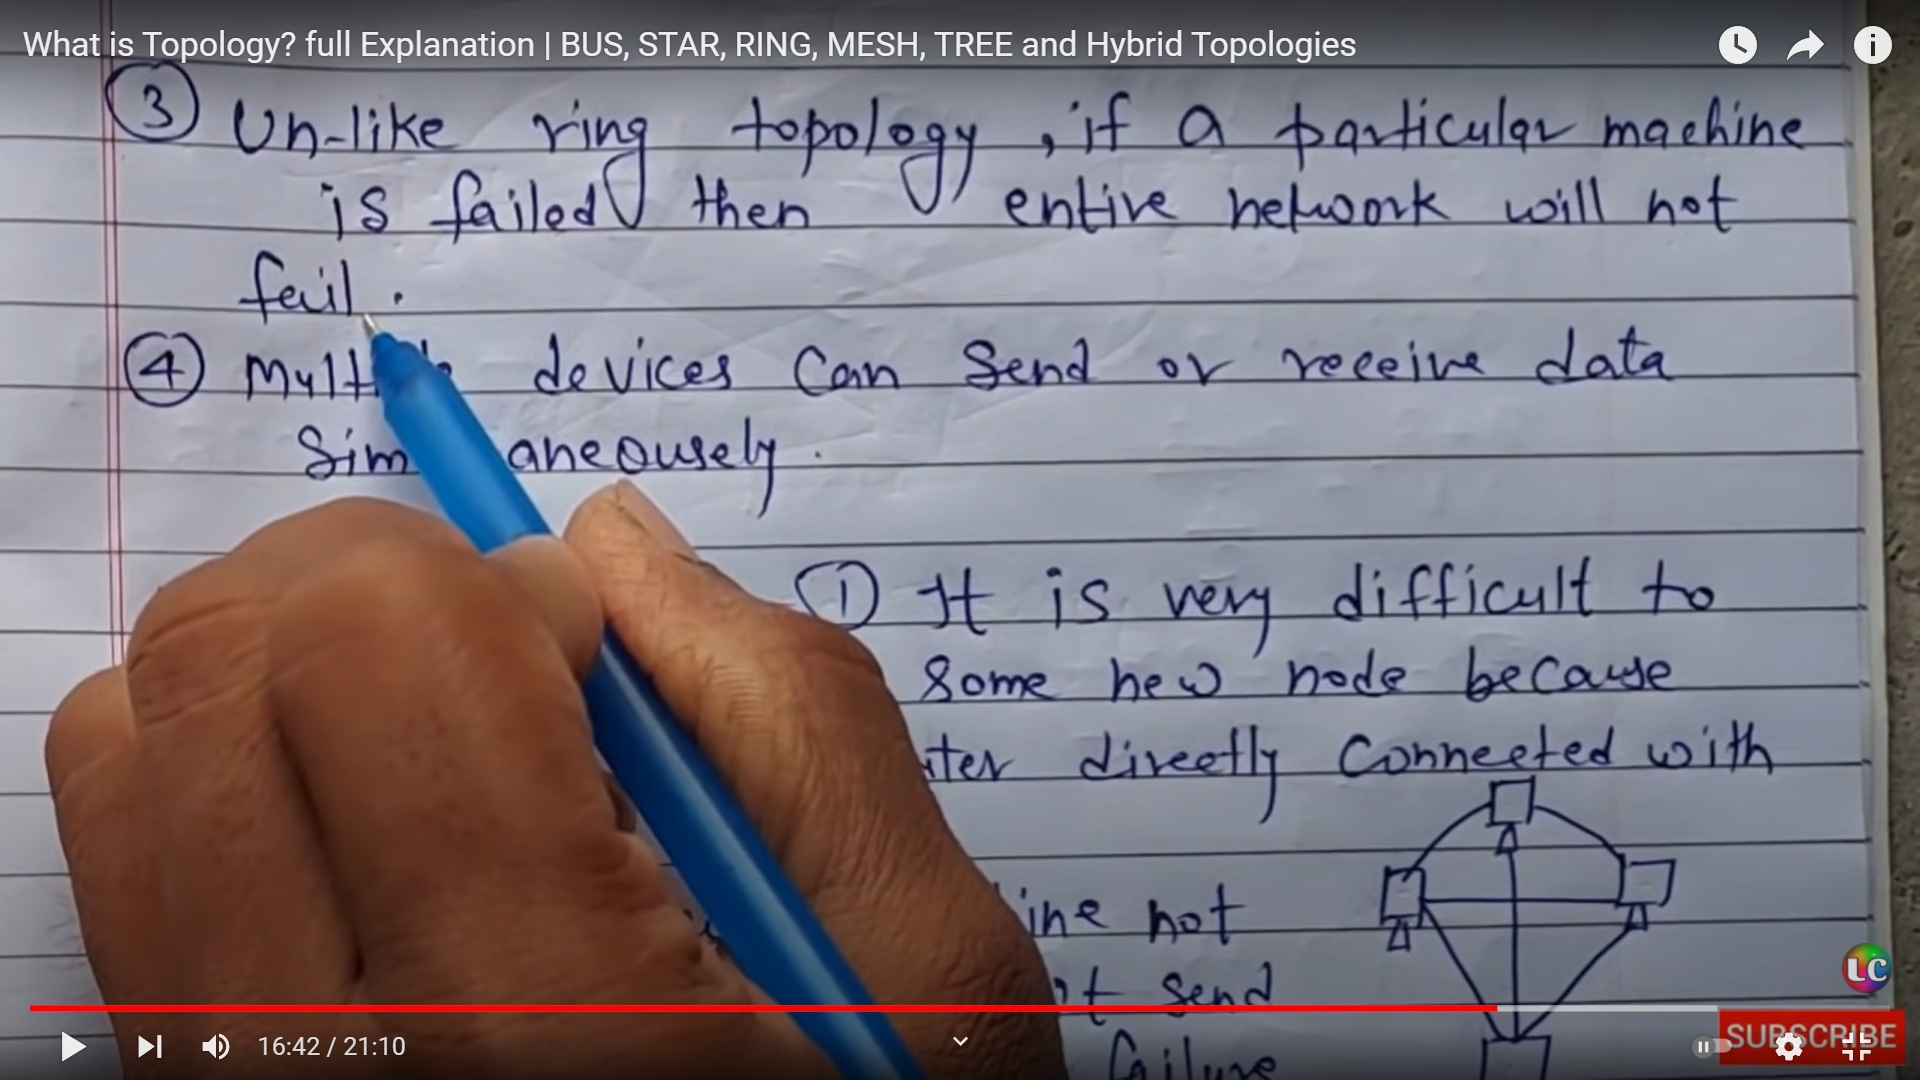 What is Topology? full Explanation | BUS, STAR, RING, MESH, TREE and Hybrid Topologies
③ Un-like ring topology, if a particular machine
is failed then entire network will not
fail.
④ devices can send or receive data
① It is very difficult to
some new node because
directly connected with
not
send
failure
LC
SUBSCRIBE
16:42 / 21:10